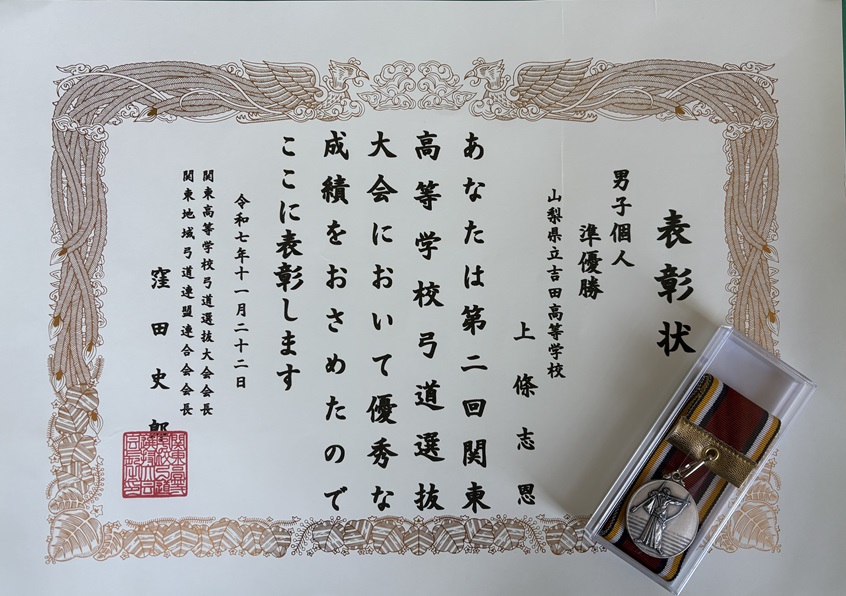 表彰状
男子個人
準優勝
山梨県立吉田高等学校
上條志恩
あなたは第二回関東
高等学校弓道選抜
大会において優秀な
成績をおさめたので
ここに表彰します
令和七年十一月二十二日
関東高等学校弓道選抜大会会長
関東地域弓道連盟連合会会長
窪田史郎